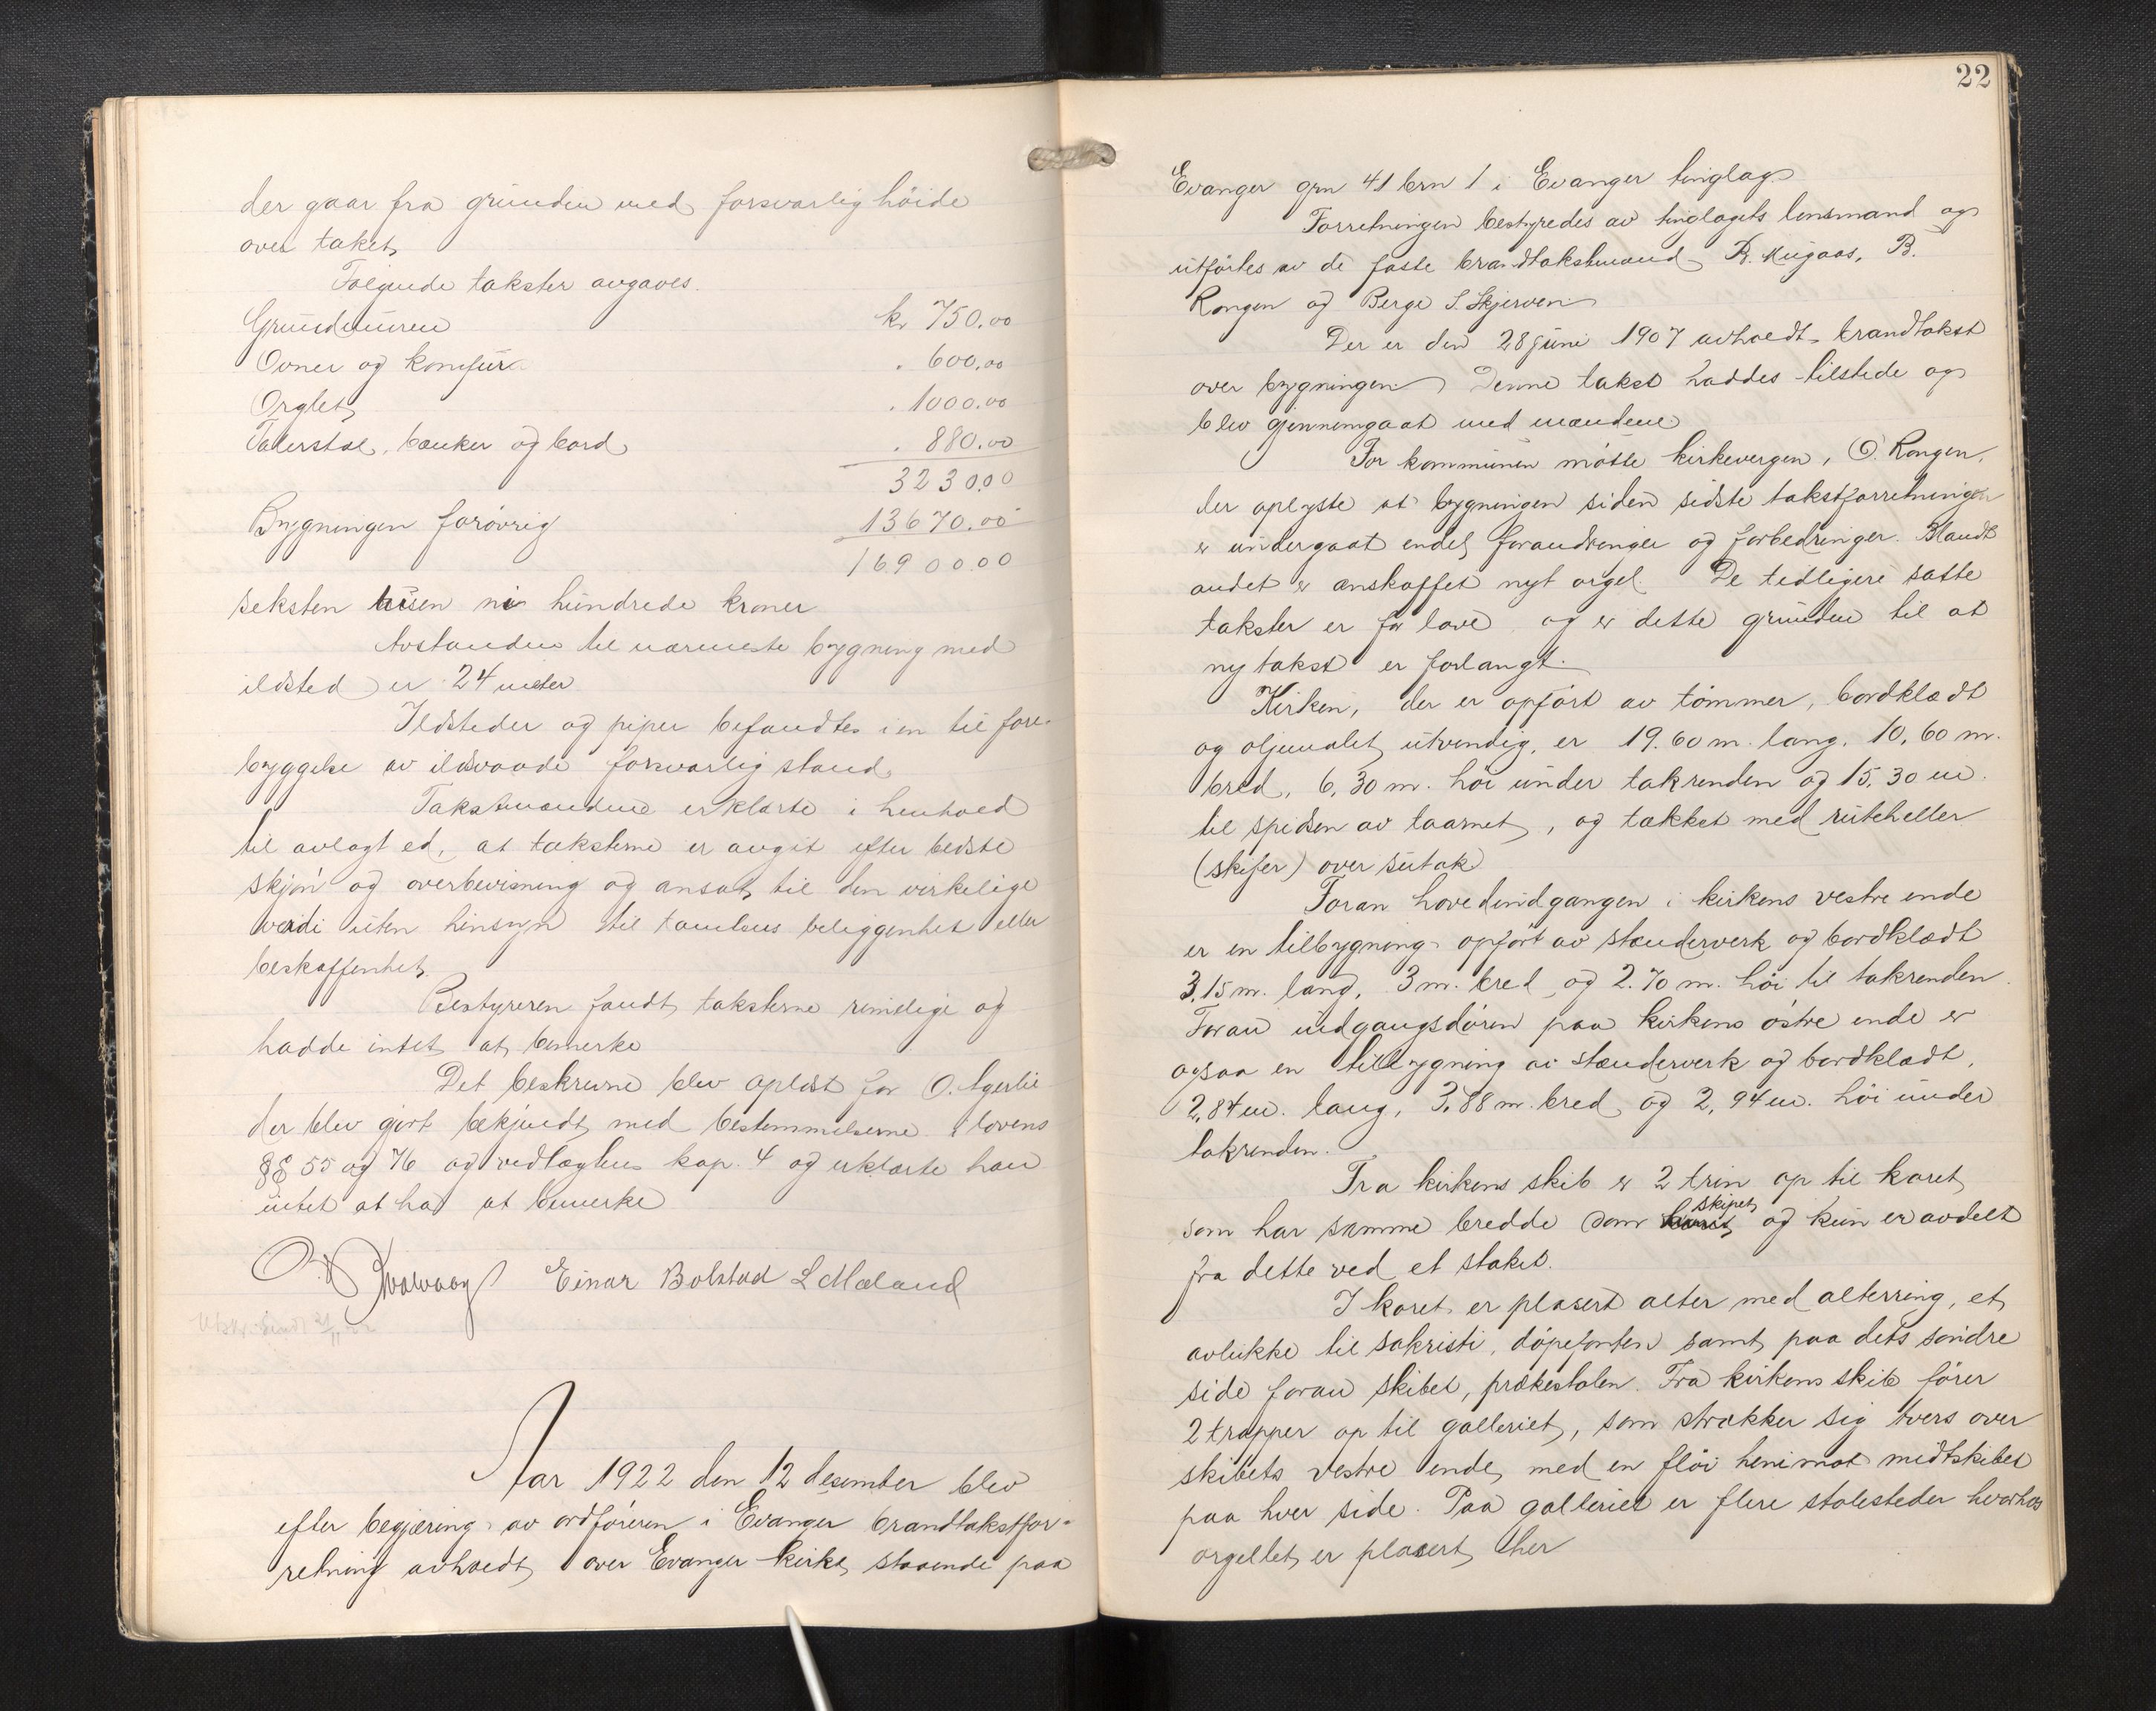 der gaar fra grunden med forsvarlig høide
over taket
Følgende takster avgaves.
Grundmuren kr 750.00
Ovner og komfur " 600.00
Orglet " 1000.00
Talerstol, bænker og bord " 880.00
3230.00
Bygningen forøvrig 13670.00
16900.00
seksten tusen ni hundrede kroner
Avstanden til nærmeste bygning med
ildsted er 24 meter
Ildsteder og piper befandtes i en til fore-
byggelse av ildsvaade forsvarlig stand.
Takstmændene erklærte i henhold
til avlagt ed, at taksterne er avgit efter bedste
skjøn og overbevisning og ansat til den virkelige
værdi uten hensyn til tomtens beliggenhet eller
beskaffenhet.
Bestyreren fandt taksterne rimelige og
hadde intet at bemerke
Det beskrevne blev oplæst for O.
der blev gjort bekjendt med bestemmelserne i lovens
§§ 55 og 76 og vedtægtens kap. 4 og erklærte han
intet at ha at bemerke
Einar Bolstad L Mæland
Aar 1922 den 12 desember blev
efter begjæring av ordføreren i Evanger brandtakstfor-
retning avholdt over Evanger kirke, staaende paa
22
Evanger grn 41 brn 1 i Evanger tinglag.
Forretningen bestyredes av tinglagets lensmand og
utførtes av de faste brandtakstmænd B. Mugaas, B.
Rongen og Berge S. Skjerven
Der er den 28 juni 1907 avholdt brandtakst
over bygningen. Denne takst haddes tilstede og
blev gjennemgaat med mændene
For kommunen møtte kirkevergen, O. Rongen,
der oplyste at bygningen siden sidste takstforretningen
er undergaat endel forandringer og forbedringer. Blandt
andet er anskaffet nyt orgel. De tidligere satte
takster er for lave og er dette grunden til at
ny takst er forlangt.
Kirken, der er opført av tømmer, bordklædt
og oljemalet utvendig, er 19.60 m. lang, 10,60 m.
bred, 6,30 m. høi under takrenden og 15,30 m.
til spidsen av taarnet, og tækket med rutheller
(skifer) over sutak
Foran hovedindgangen i kirkens vestre ende
er en tilbygning opført av stenderverk og bordklædt
3,15 m. lang, 3 m. bred og 2.70 m. høi til takrenden.
Foran indgangsdøren paa kirkens østre ende er
ogsaa en tilbygning av stenderverk og bordklædt,
2,84 m. lang, 3,88 m. bred og 2,94 m. høi under
takrenden.
Fra kirkens skib er 2 trin op til koret,
som har samme bredde som koret skipet og kun er avdelt
fra dette ved et stakit.
I koret er plasert alter med alterring, et
avlukke til sakristi, døpefonten samt paa dets søndre
side foran skibet, prækestolen. Fra kirkens skib fører
2 trapper op til galleriet, som strækker sig tvers over
skibets vestre ende med en fløi henimot midtskibet
paa hver side. Paa galleriet er flere stolesteder hvorhos
orgellet er plasert her